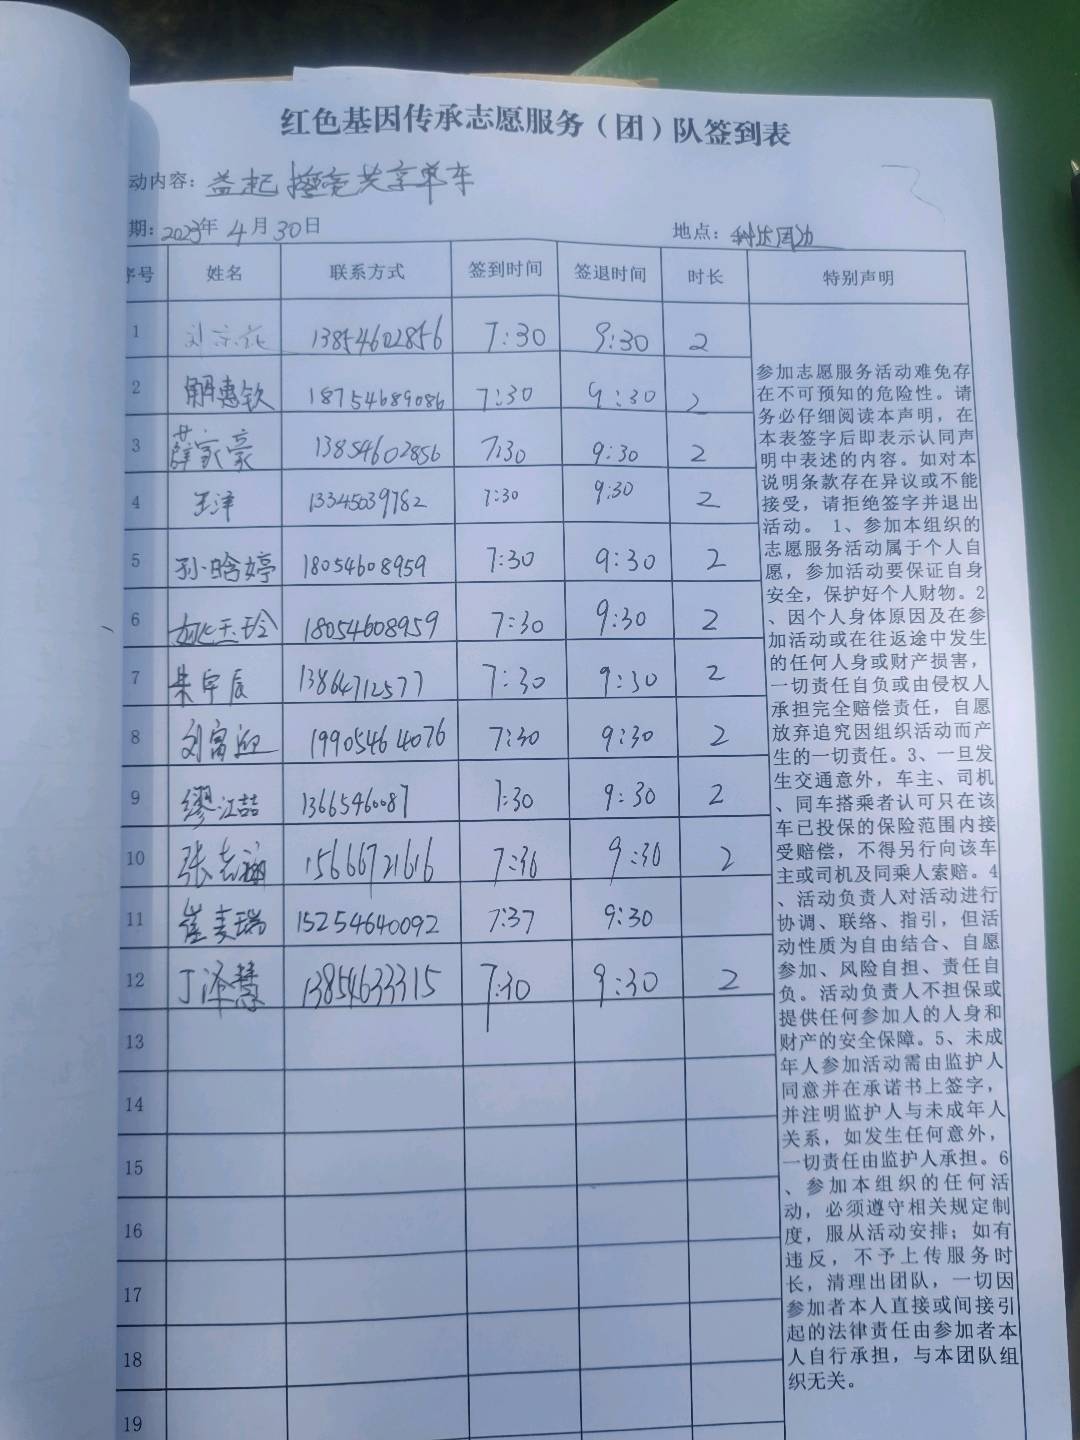 红色基因传承志愿服务（团）队签到表
动内容：益起擦亮共享单车
期：2023年4月30日 地点：
序号 姓名 联系方式 签到时间 签退时间 时长 特别声明
1 13854602856 7:30 9:30 2
2 惠钦 18754689086 7:30 9:30 2
3 薛家豪 13854602856 7:30 9:30 2
4 王洋 13345039782 7:30 9:30 2
5 孙晗婷 18054608959 7:30 9:30 2
6 姚玉玲 18054608959 7:30 9:30 2
7 朱宇辰 13864712577 7:30 9:30 2
8 刘富迎 19905464076 7:30 9:30 2
9 缪江喆 13665460087 7:30 9:30 2
10 张志翔 15666721616 7:30 9:30 2
11 崔麦瑞 15254640092 7:37 9:30
12 丁泽慧 13854633315 7:30 9:30 2
13
14
15
16
17
18
19
参加志愿服务活动难免存
在不可预知的危险性。请
务必仔细阅读本声明，在
本表签字后即表示认同声
明中表述的内容。如对本
说明条款存在异议或不能
接受，请拒绝签字并退出
活动。1、参加本组织的
志愿服务活动属于个人自
愿，参加活动要保证自身
安全，保护好个人财物。2
、因个人身体原因及在参
加活动或在往返途中发生
的任何人身或财产损害，
一切责任自负或由侵权人
承担完全赔偿责任，自愿
放弃追究因组织活动而产
生的一切责任。3、一旦发
生交通意外，车主、司机
、同车搭乘者认可只在该
车已投保的保险范围内接
受赔偿，不得另行向该车
主或司机及同乘人索赔。4
、活动负责人对活动进行
协调、联络、指引，但活
动性质为自由结合、自愿
参加、风险自担、责任自
负。活动负责人不担保或
提供任何参加人的人身和
财产的安全保障。5、未成
年人参加活动需由监护人
同意并在承诺书上签字，
并注明监护人与未成年人
关系，如发生任何意外，
一切责任由监护人承担。6
、参加本组织的任何活
动，必须遵守相关规定制
度，服从活动安排；如有
违反，不予上传服务时
长，清理出团队，一切因
参加者本人直接或间接引
起的法律责任由参加者本
人自行承担，与本团队组
织无关。